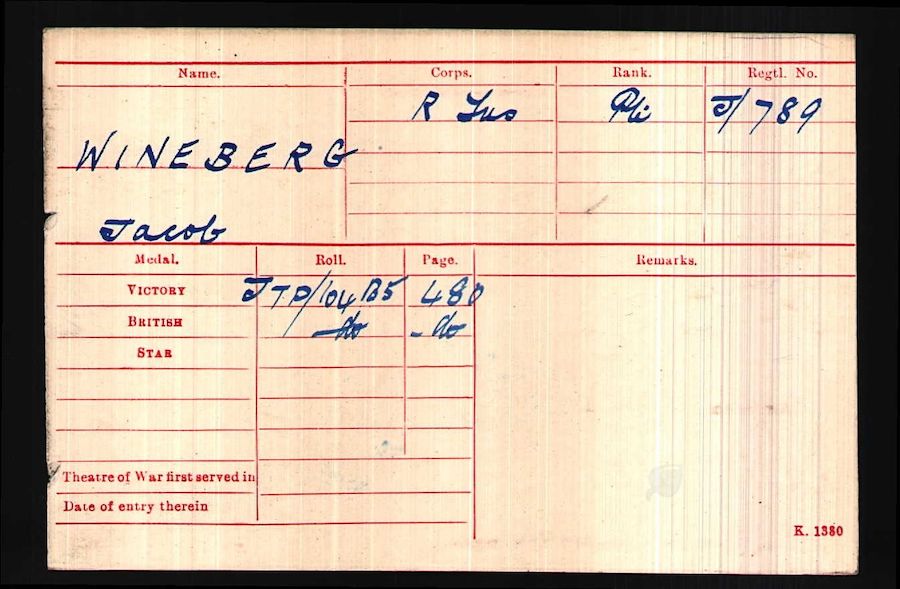 Name. Corps. Rank. Regtl. No.
R Fus Pte J/789
WINEBERG
Jacob
Medal. Roll. Page. Remarks.
VICTORY JTP/104B5 480
BRITISH -do -do
STAR
Theatre of War first served in
Date of entry therein
K. 1380